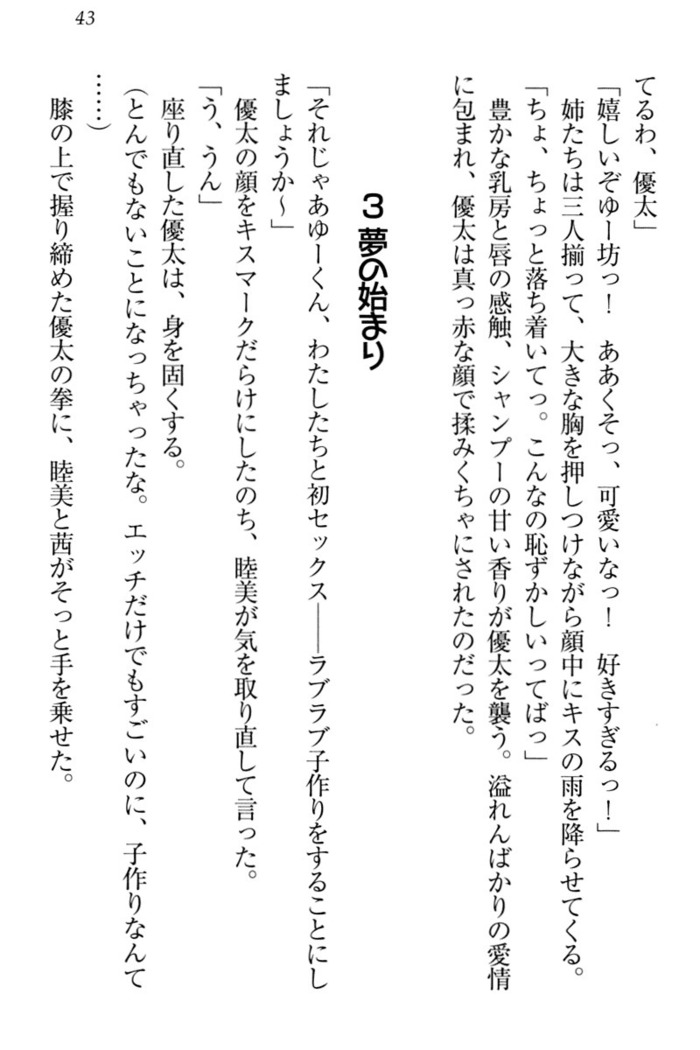 43
てるわ、優太」
「嬉しいぞゆー坊っ！　ああくそっ、可愛いなっ！　好きすぎるっ！」
姉たちは三人揃って、大きな胸を押しつけながら顔中にキスの雨を降らせてくる。
「ちょ、ちょっと落ち着いてっ。こんなの恥ずかしいってばっ」
豊かな乳房と唇の感触、シャンプーの甘い香りが優太を襲う。溢れんばかりの愛情
に包まれ、優太は真っ赤な顔で揉みくちゃにされたのだった。
3 夢の始まり
「それじゃあゆーくん、わたしたちと初セックス――ラブラブ子作りをすることにし
ましょうか～」
優太の顔をキスマークだらけにしたのち、睦美が気を取り直して言った。
「う、うん」
座り直した優太は、身を固くする。
（とんでもないことになっちゃったな。エッチだけでもすごいのに、子作りなんて
……）
膝の上で握り締めた優太の拳に、睦美と茜がそっと手を乗せた。